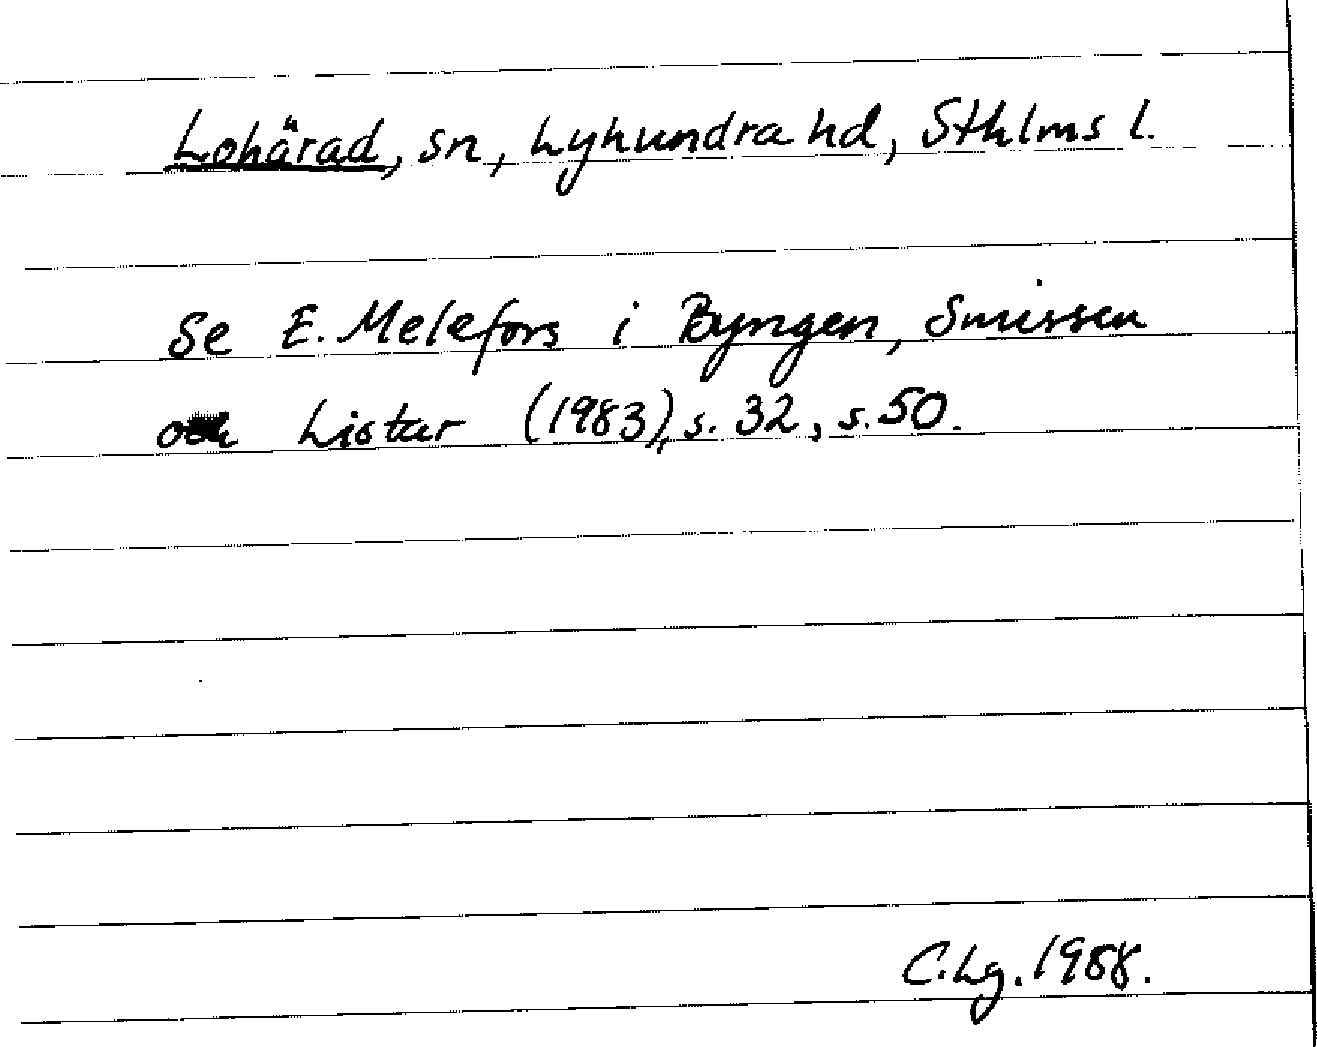 Lohärad, sn, Lyhundra hd, Sthlms l.
Se E. Melefors i Byngen, Smissen
och Listar (1983), s. 32, s. 50.
C.Lg. 1988.